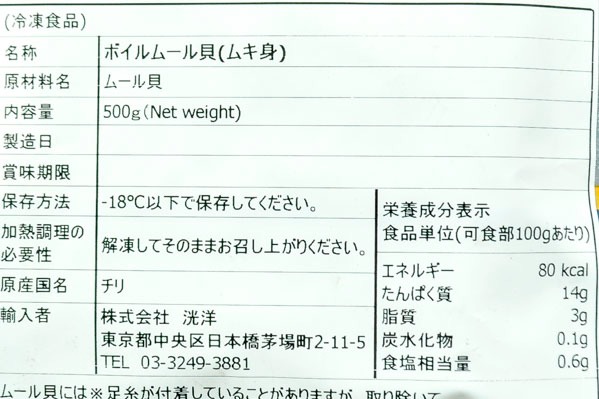 (冷凍食品)
名称 ボイルムール貝(ムキ身)
原材料名 ムール貝
内容量 500g(Net weight)
製造日
賞味期限
保存方法 -18℃以下で保存してください。
加熱調理の必要性 解凍してそのままお召し上がりください。
原産国名 チリ
輸入者 株式会社 洸洋
東京都中央区日本橋茅場町2-11-5
TEL 03-3249-3881
栄養成分表示
食品単位(可食部100gあたり)
エネルギー 80 kcal
たんぱく質 14g
脂質 3g
炭水化物 0.1g
食塩相当量 0.6g
ムール貝には※足糸が付着していることがありますが、取り除いて